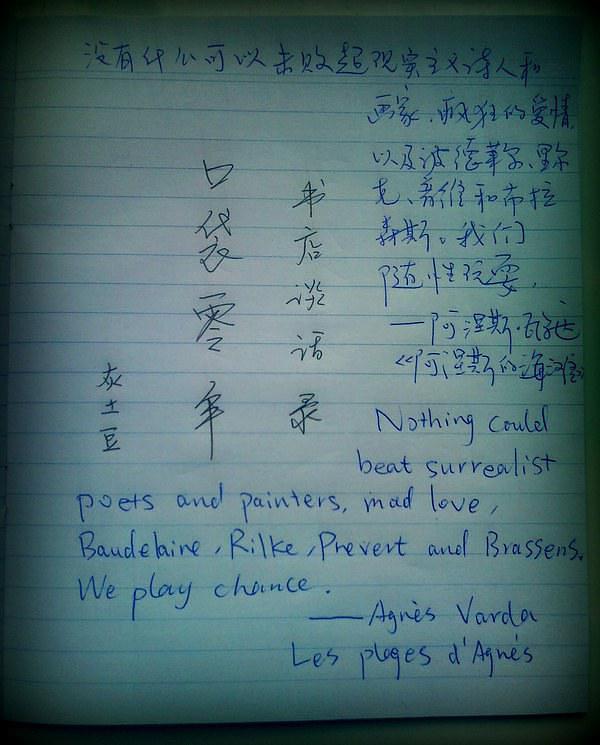 没有什么可以击败超现实主义诗人和
画家、疯狂的爱情
以及波德莱尔、里尔
克、普维和布拉
森斯。我们
随性玩耍。
—阿涅斯·瓦尔达
《阿涅斯的海滩》
书店谈话录
口袋零年
灰土豆
Nothing could
beat surrealist
poets and painters, mad love,
Baudelaine, Rilke, Prevert and Brassens.
We play chance.
——Agnès Varda
Les plages d'Agnés